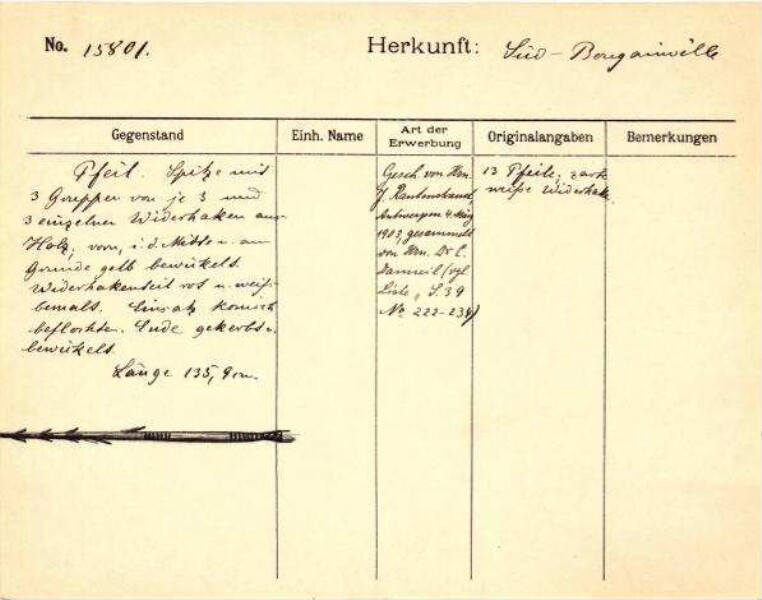 No. 15801.
Herkunft: Süd-Bougainville
Gegenstand
Einh. Name
Art der Erwerbung
Originalangaben
Bemerkungen
Pfeil. Spitze mit
3 Gruppen von je 3 und
3 einzelnen Widerhaken aus
Holz, vorn, i.d. Mitte u. am
Grunde gelb bewickelt.
Widerhakenteil rot u. weiß
bemalt. Einsatz konisch
beflochten. Ende gekerbt u.
bewickelt.
Länge 135,9 cm.
Gesch von Hrn.
J. Rautenstrauch
Antwerpen 4. März
1903, gesammelt
von Hrn. Dr C.
Danneil (vgl
Liste, S.39
No 222-234)
13 Pfeile,
weiße Widerhak.